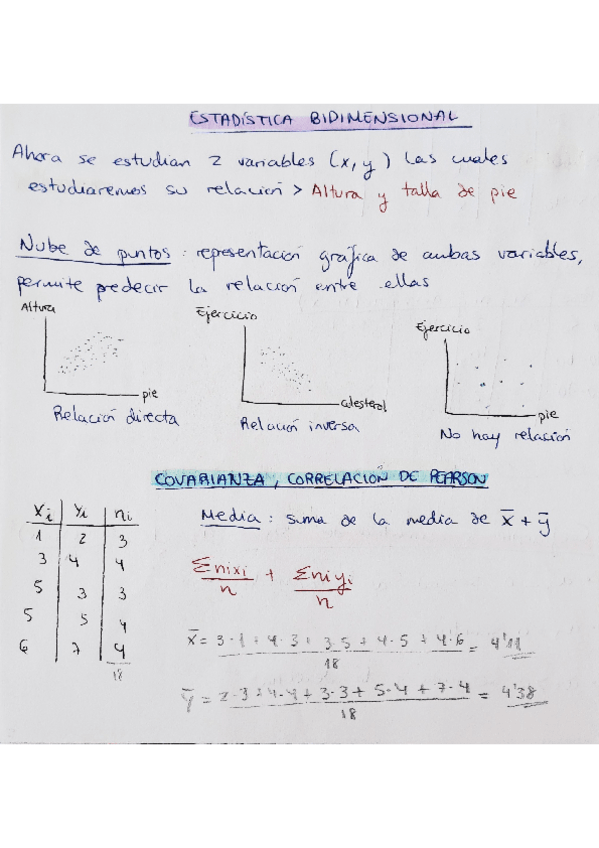 ESTADÍSTICA BIDIMENSIONAL
Ahora se estudian 2 variables (x, y) las cuales
estudiaremos su relación > Altura y talla de pie
Nube de puntos : representación gráfica de ambas variables,
permite predecir la relación entre ellas
Altura
pie
Relación directa
Ejercicio
Colesterol
Relación inversa
Ejercicio
pie
No hay relación
COVARIANZA, CORRELACIÓN DE PEARSON
Xi | Yi | ni
1 | 2 | 3
3 | 4 | 4
5 | 3 | 3
5 | 5 | 4
6 | 7 | 4
18
Media : suma de la media de x̄ + ȳ
Σnixi / n + Σniyi / n
x̄ = 3·1 + 4·3 + 3·5 + 4·5 + 4·6 / 18 = 4'11
ȳ = 2·3 + 4·4 + 3·3 + 5·4 + 7·4 / 18 = 4'38